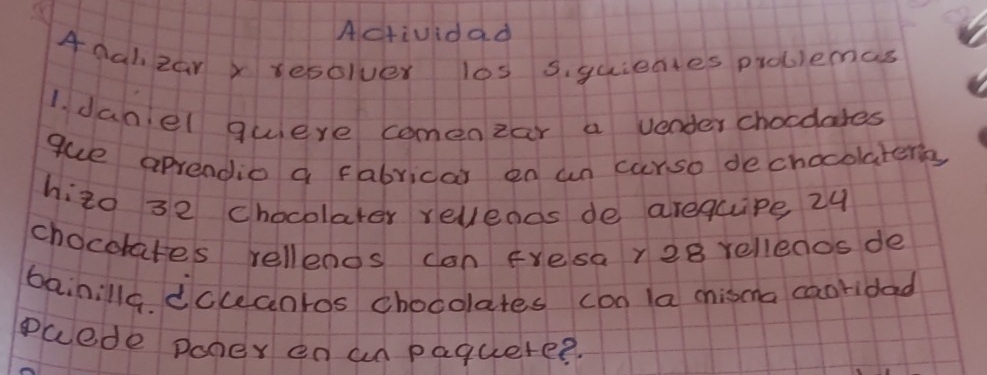 Actividad
Analizar y resolver los siguientes problemas
1. daniel quiere comenzar a vender chocolates
que aprendio a fabricar en un curso de chocolateria,
hizo 32 chocolater rellenos de arequipe, 24
chocolates rellenos con fresa y 28 rellenos de
bainilla. ¿cuantos chocolates con la misma cantidad
puede poner en un paquete?.